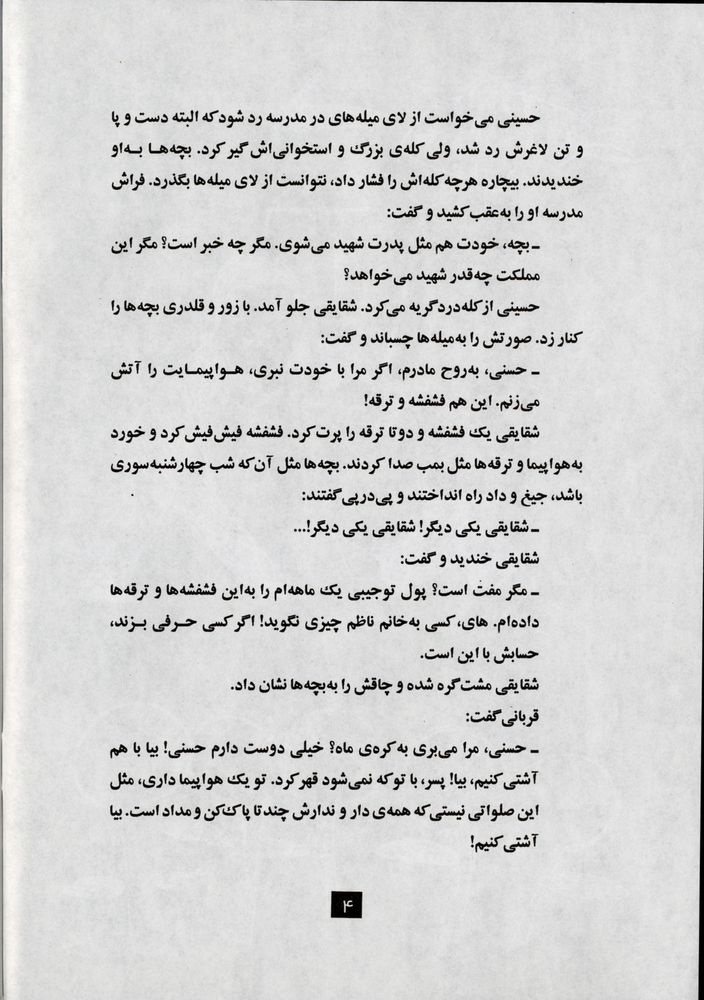 حسینی می‌خواست از لای میله‌های در مدرسه رد شود که البته دست و پا
و تن لاغرش رد شد، ولی کله‌ی بزرگ و استخوانی‌اش گیر کرد. بچه‌ها به‌او
خندیدند. بیچاره هرچه کله‌اش را فشار داد، نتوانست از لای میله‌ها بگذرد. فراش
مدرسه او را به‌عقب کشید و گفت:
ـ بچه، خودت هم مثل پدرت شهید می‌شوی. مگر چه خبر است؟ مگر این
مملکت چه‌قدر شهید می‌خواهد؟
حسینی از کله‌درد گریه می‌کرد. شقایقی جلو آمد. با زور و قلدری بچه‌ها را
کنار زد. صورتش را به‌میله‌ها چسباند و گفت:
ـ حسنی، به‌روح مادرم، اگر مرا با خودت نبری، هـواپیمـایت را آتش
می‌زنم. این هم فشفشه و ترقه!
شقایقی یک فشفشه و دوتا ترقه را پرت کرد. فشفشه فیش‌فیش کرد و خورد
به‌هواپیما و ترقه‌ها مثل بمب صدا کردند. بچه‌ها مثل آن‌که شب چهارشنبه‌سوری
باشد، جیغ و داد راه انداختند و پی‌درپی گفتند:
ـ شقایقی یکی دیگر! شقایقی یکی دیگر!...
شقایقی خندید و گفت:
ـ مگر مفت است؟ پول توجیبی یک ماهه‌ام را به‌این فشفشه‌ها و ترقه‌ها
داده‌ام. های، کسی به‌خانم ناظم چیزی نگوید! اگر کسی حـرفی بـزند،
حسابش با این است.
شقایقی مشت گره شده و چاقش را به‌بچه‌ها نشان داد.
قربانی گفت:
ـ حسنی، مرا می‌بری به‌کره‌ی ماه؟ خیلی دوست دارم حسنی! بیا با هم
آشتی کنیم، بیا! پسر، با تو که نمی‌شود قهر کرد. تو یک هواپیما داری، مثل
این صلواتی نیستی که همه‌ی دار و ندارش چند تا پاک‌کن و مداد است. بیا
آشتی کنیم!
۴